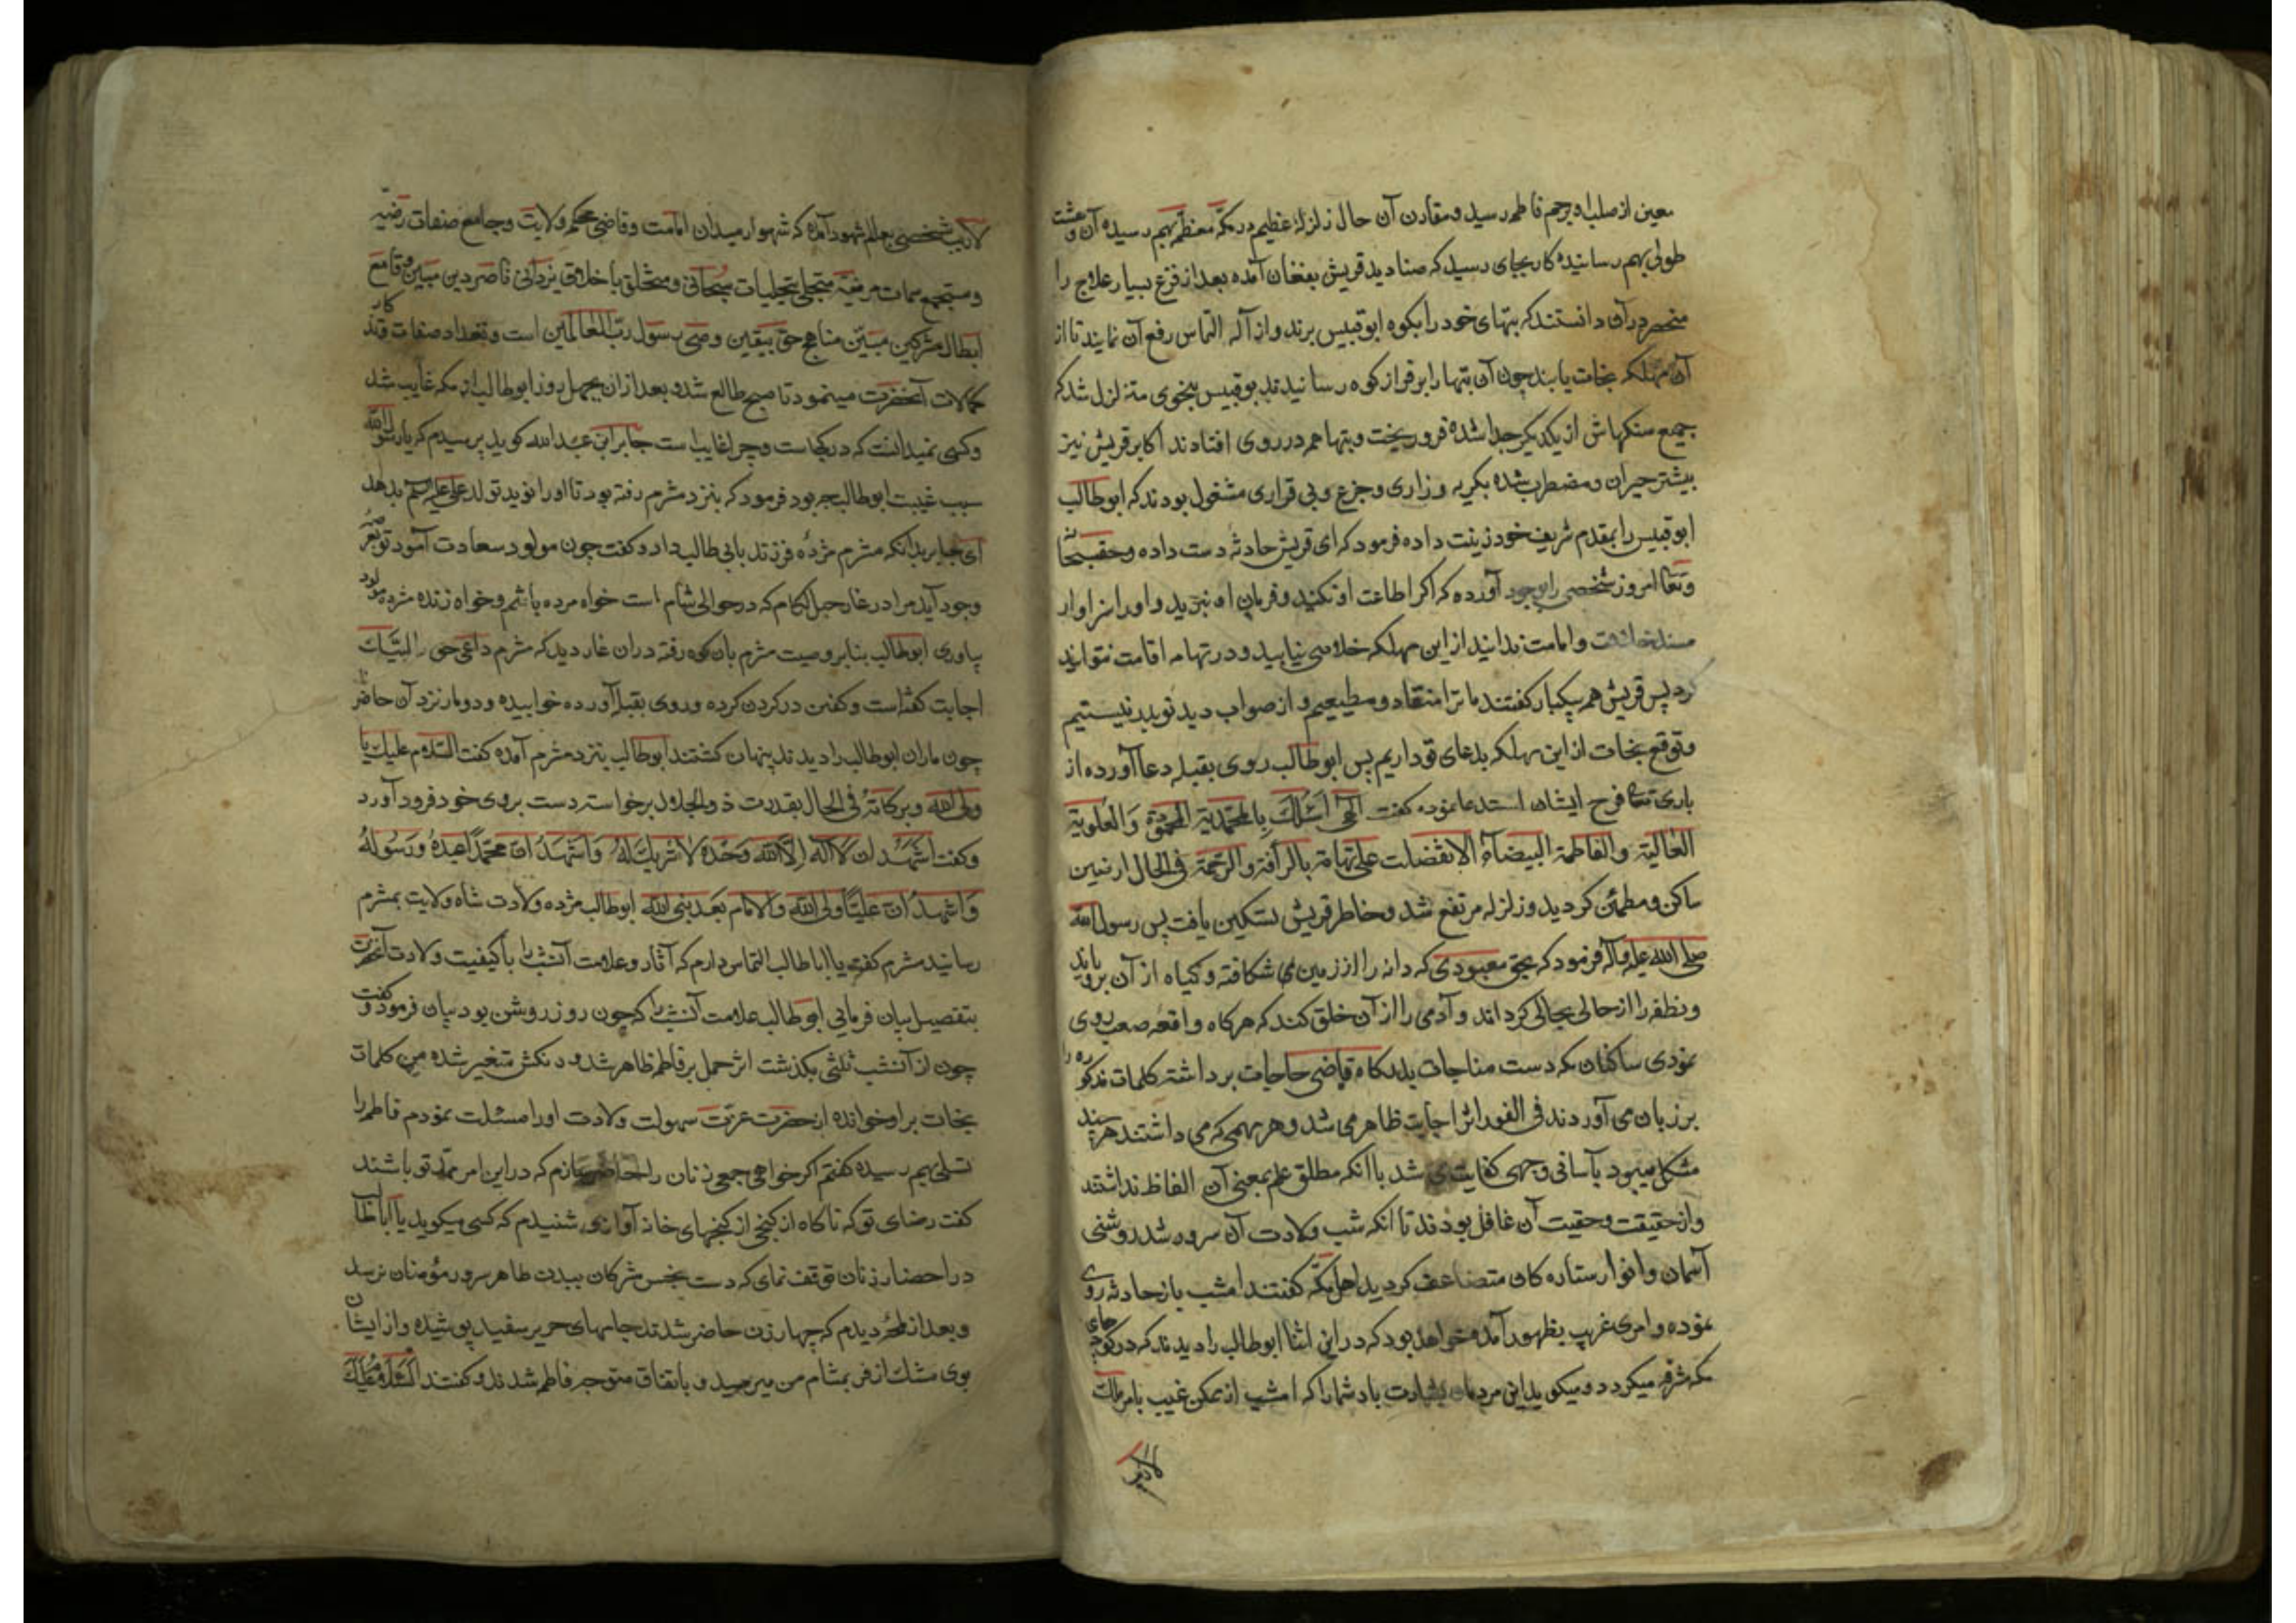 معین از صلب او برحم فاطمه رسید و مقارن آن حال زلزلهٔ عظیم در مکّه معظّمه بهم رسیده آن وحشت
طولی بهم رسانیده کار بجای رسید که صنادید قریش بفغان آمده بعد از فزع بسیار علاج را
منحصر در آن دانستند که بتهای خود را بکوه ابوقبیس برند و از آلهه التماس رفع آن نمایند تا از
آن مهلکه نجات یابند چون آن بتها را بر فراز کوه رسانیدند بوقبیس بنحوی متزلزل شد که
جمیع سنکهاش از یکدیکر جدا شده فرو ریخت و بتها همه در روی افتادند اکابر قریش نیز
بیشتر حیران و مضطرب شده بکریه و زاری و جزع و بی قراری مشغول بودند که ابوطالب
ابوقبیس را بمقدم شریف خود زینت داده فرمود که ای قریش حادثه دست داده و حق سبحانه
و تعا امروز شخصی را بوجود آورده که اکر اطاعت او نکنید و فرمان او نبرید و او را سزاوار
مسند خلافت و امامت ندانید از این مهلکه خلاصی نیابید و در تهامه اقامت نتوانید
کرد پس قریش همه بیکبار کفتند ما ترا منقاد و مطیعیم و از صواب دید تو بدر نیستیم
و توقع نجات از این مهلکه بدعای تو داریم پس ابوطالب روی بقبله دعا آورده از
باری تعا فرج ایشان استدعا نموده کفت الهی اسئلک بالمحمدیة المحمودة والعلویة
العالیة والفاطمة البیضاء الا تفضلت علی تهامة بالرأفة والرحمة فی الحال ارضین
ساکن و مطمئن کردید و زلزله مرتفع شد و خاطر قریش تسکین یافت پس رسول الله
صلی الله علیه وآله فرمود که بحق معبودی که دانه را از زمین می شکافته و کیاه از آن برویاند
و نطفه را از حالی بحالی کرداند و آدمی را از آن خلق کند که هرکاه واقعه صعب روی
نمودی ساکنان مکه دست مناجات بدرکاه قاضی حاجات برداشته کلمات مذکوره را
بر زبان می آوردند فی الفور اثر اجابت ظاهر می شد و هر مهمی که می داشتند هر چند
مشکل میبود بآسانی وجهی کفایت می شد با آنکه مطلق علم بمعنی آن الفاظ نداشتند
و از حقیقت و حقیت آن غافل بودند تا آنکه شب ولادت آن سرور شد روشنی
آسمان و انوار ستاره کان متضاعف کردید اهل مکّه کفتند امشب باز حادثه روی
نموده و امری غریب بظهور آمده خواهد بود که در این اثنا ابوطالب را دیدند که در کوچهای
مکه مشرفه میکردد و میکوید ای مردمان بشارت باد شما را که امشب از ممکن غیب بامر مالک
لاریب
لاریب شخصی بعالم شهود آمده که شهسوار میدان امامت و قاضی محکمه ولایت و جامع صفات رضیه
و مستجمع سمات مرضیه متجلی بتجلیات سبحانی و متخلق باخلاق یزدانی ناصر دین مبین و قامع
ابطال مشرکین مبین مناهج حق بیقین وصی رسول رب العالمین است و تعداد صفات قدسی
کمالات آنحضرت مینمود تا صبح طالع شد و بعد از ان بچهل روز ابوطالب از مکه غایب شد
و کسی نمیدانست که در کجاست و چرا غایب است جابر ابن عبد الله کوید پرسیدم که یا رسول الله
سبب غیبت ابوطالب چه بود فرمود که بنزد مثرم رفته بود تا او را نوید تولد علی علیه السلم بدهد
ای جابر بدانکه مثرم مژده فرزند بابی طالب داد و کفت چون مولود سعادت آمود تو بعرصه
وجود آید مرا در غار جبل لکام که در حوالی شام است خواه مرده باشم و خواه زنده مژده مولود
بیاوری ابوطالب بنابر وصیت مثرم بان کوه رفته دران غار دید که مثرم داعی حق را لبیک
اجابت کفته است و کفن در کردن کرده و روی بقبله آورده خوابیده و دو مار نزد آن حاضر
چون ماران ابوطالب را دیدند پنهان کشتند ابوطالب بنزد مثرم آمده کفت السلام علیک یا
ولی الله و برکاته فی الحال بقدرت ذوالجلال برخواسته دست بروی خود فرود آورد
و کفت اشهد ان لا اله الا الله وحده لا شریک له و اشهد ان محمدا عبده و رسوله
و اشهد ان علیا ولی الله والامام بعد نبی الله ابوطالب مژده ولادت شاه ولایت بمثرم
رسانید مثرم کفت یا اباطالب التماس دارم که آثار و علامت آنشب را با کیفیت ولادت آنحضرت
بتفصیل بیان فرمایی ابوطالب علامت آنشب را که چون روز روشن بود بیان فرمود و کفت
چون از آنشب ثلثی بکذشت اثر حمل بر فاطمه ظاهر شد و رنکش متغیر شده من کلمات
نجات بر او خوانده از حضرت عزت سهولت ولادت او را مسئلت نمودم فاطمه را
تسلی بهم رسیده کفتم اکر خواهی جمعی زنان را حاضر سازم که در این امر ممد تو باشند
کفت رضای تو که ناکاه از کنجی از کنجهای خانه آوازی شنیدم که کسی میکوید یا اباطالب
در احضار زنان توقف نمای که دست نجس مشرکان ببدن طاهر سرور مؤمنان نرسد
و بعد از لمحه دیدم که چهار زن حاضر شدند جامهای حریر سفید پوشیده و از ایشان
بوی مشک از فر بمشام من میرسید و باتفاق متوجه فاطمه شدند و کفتند السلام علیک